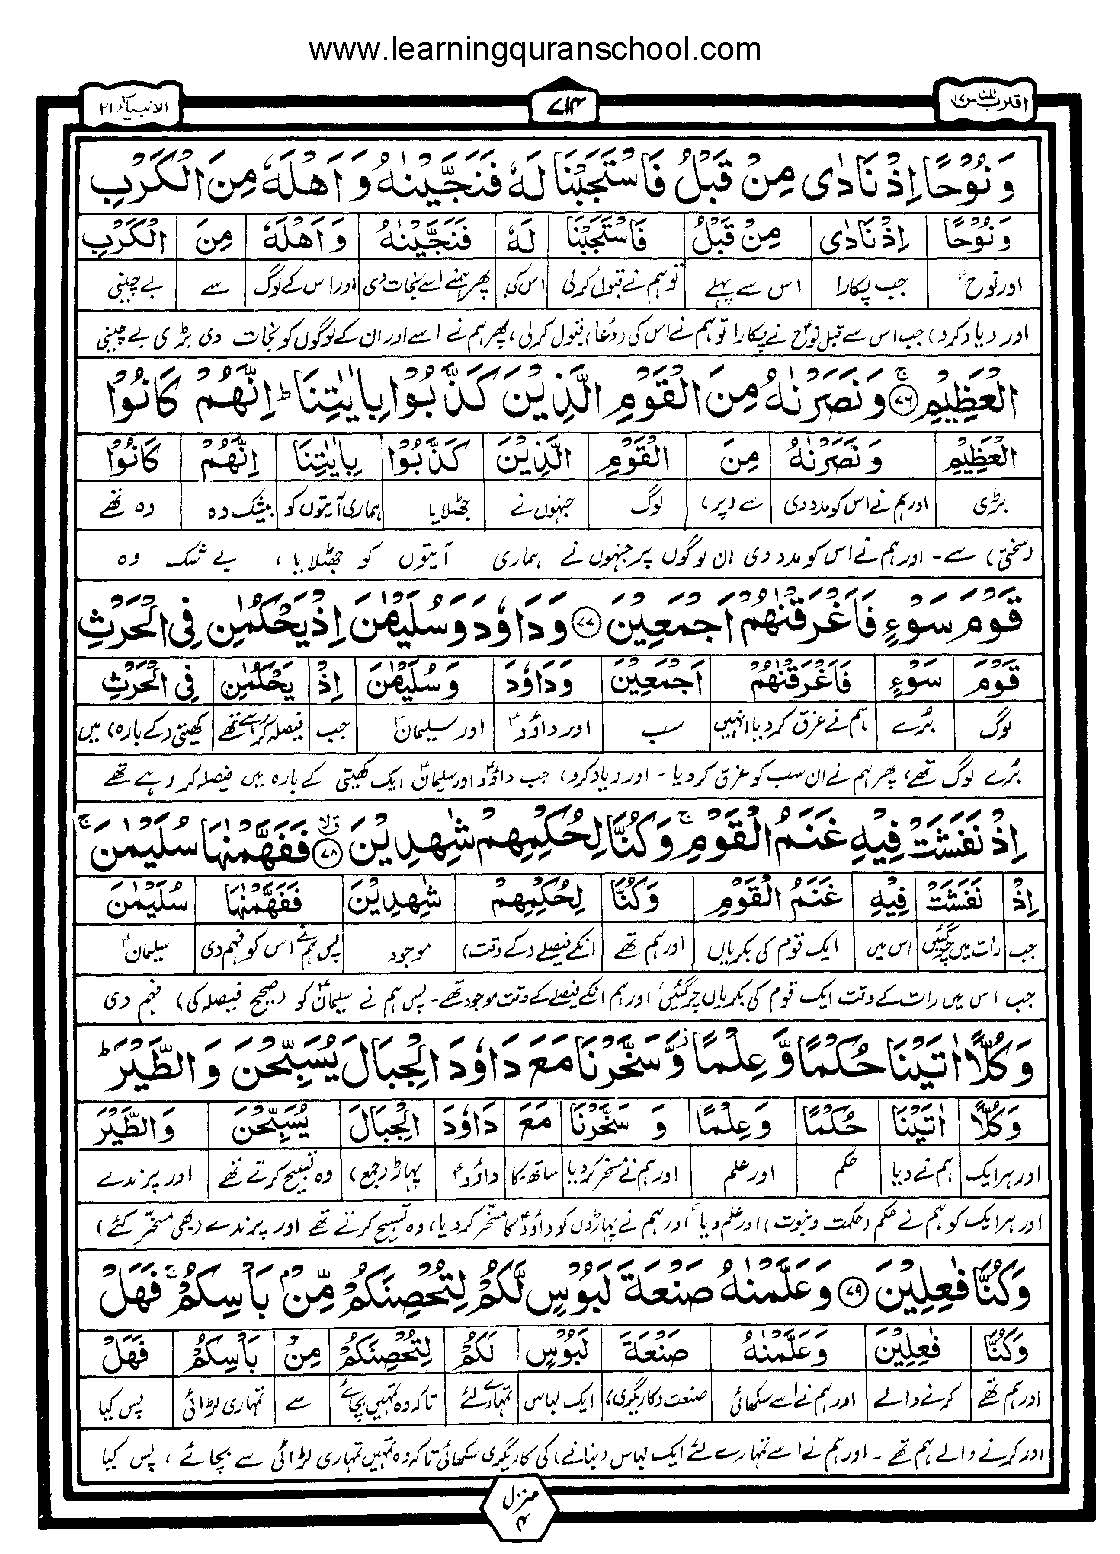 www.learningquranschool.com
اقترب للناس ۱۷ ۷۱۴ الانبیاء ۲۱
وَنُوْحًا اِذْ نَادٰى مِنْ قَبْلُ فَاسْتَجَبْنَا لَهٗ فَنَجَّيْنٰهُ وَاَهْلَهٗ مِنَ الْكَرْبِ
وَنُوْحًا اِذْ نَادٰى مِنْ قَبْلُ فَاسْتَجَبْنَا لَهٗ فَنَجَّيْنٰهُ وَاَهْلَهٗ مِنَ الْكَرْبِ
اور نوحؑ جب پکارا اس سے پہلے تو ہم نے قبول کرلی اس کی پھر ہم نے اسے نجات دی اور اس کے لوگ سے بے چینی
اور (یاد کرو) جب اس سے قبل نوحؑ نے پکارا تو ہم نے اس کی (دُعا) قبول کرلی، پھر ہم نے اسے اور ان کے لوگوں کو نجات دی بڑی بے چینی
الْعَظِيْمِ ۚ﴿۷۶﴾ وَنَصَرْنٰهُ مِنَ الْقَوْمِ الَّذِيْنَ كَذَّبُوْا بِاٰيٰتِنَا ؕ اِنَّهُمْ كَانُوْا
الْعَظِيْمِ وَنَصَرْنٰهُ مِنَ الْقَوْمِ الَّذِيْنَ كَذَّبُوْا بِاٰيٰتِنَا اِنَّهُمْ كَانُوْا
بڑی اور ہم نے اس کو مدد دی سے (پر) لوگ جنہوں نے جھٹلایا ہماری آیتوں کو بیشک وہ وہ تھے
(سختی) سے۔ اور ہم نے اس کو مدد دی ان لوگوں پر جنہوں نے ہماری آیتوں کو جھٹلایا، بے شک وہ
قَوْمَ سَوْءٍ فَاَغْرَقْنٰهُمْ اَجْمَعِيْنَ ﴿۷۷﴾ وَدَاوٗدَ وَسُلَيْمٰنَ اِذْ يَحْكُمٰنِ فِى الْحَرْثِ
قَوْمَ سَوْءٍ فَاَغْرَقْنٰهُمْ اَجْمَعِيْنَ وَدَاوٗدَ وَسُلَيْمٰنَ اِذْ يَحْكُمٰنِ فِى الْحَرْثِ
لوگ بُرے ہم نے غرق کردیا انہیں سب اور داؤدؑ اور سلیمانؑ جب فیصلہ کر رہے تھے کھیتی (کے بارہ) میں
بُرے لوگ تھے، پھر ہم نے ان سب کو غرق کر دیا۔ اور (یاد کرو) جب داؤدؑ اور سلیمانؑ ایک کھیتی کے بارہ میں فیصلہ کر رہے تھے
اِذْ نَفَشَتْ فِيْهِ غَنَمُ الْقَوْمِ ۚ وَكُنَّا لِحُكْمِهِمْ شٰهِدِيْنَ ﴿۷۸﴾ۙ فَفَهَّمْنٰهَا سُلَيْمٰنَ ۚ
اِذْ نَفَشَتْ فِيْهِ غَنَمُ الْقَوْمِ وَكُنَّا لِحُكْمِهِمْ شٰهِدِيْنَ فَفَهَّمْنٰهَا سُلَيْمٰنَ
جب رات میں چرگئیں اس میں ایک قوم کی بکریاں اور ہم تھے انکے فیصلے (کے وقت) موجود پس ہم نے اس کو فہم دی سلیمانؑ
جب اس میں رات کے وقت ایک قوم کی بکریاں چر گئیں اور ہم انکے فیصلے کے وقت موجود تھے۔ پس ہم نے سلیمانؑ کو (صحیح فیصلہ کی) فہم دی
وَكُلًّا اٰتَيْنَا حُكْمًا وَّعِلْمًا ۫ وَّسَخَّرْنَا مَعَ دَاوٗدَ الْجِبَالَ يُسَبِّحْنَ وَالطَّيْرَ ؕ
وَكُلًّا اٰتَيْنَا حُكْمًا وَعِلْمًا وَسَخَّرْنَا مَعَ دَاوٗدَ الْجِبَالَ يُسَبِّحْنَ وَالطَّيْرَ
اور ہر ایک ہم نے دیا حکم اور علم اور ہم نے مسخر کردیا ساتھ۔ کا داؤدؑ پہاڑ (جمع) وہ تسبیح کرتے تھے اور پرندے
اور ہر ایک کو ہم نے حکم (حکمت و نبوت) اور علم دیا اور ہم نے پہاڑوں کو داؤدؑ کا مسخر کردیا، وہ تسبیح کرتے تھے اور پرندے (بھی مسخر کئے)
وَكُنَّا فٰعِلِيْنَ ﴿۷۹﴾ وَعَلَّمْنٰهُ صَنْعَةَ لَبُوْسٍ لَّكُمْ لِتُحْصِنَكُمْ مِّنْۢ بَاْسِكُمْ ۚ فَهَلْ
وَكُنَّا فٰعِلِيْنَ وَعَلَّمْنٰهُ صَنْعَةَ لَبُوْسٍ لَكُمْ لِتُحْصِنَكُمْ مِنْ بَاْسِكُمْ فَهَلْ
اور ہم تھے کرنے والے اور ہم نے اسے سکھائی صنعت (کاریگری) ایک لباس تمہارے لئے تاکہ وہ تمہیں بچائے سے تمہاری لڑائی پس کیا
اور کرنے والے ہم تھے۔ اور ہم نے اسے تمہارے لئے ایک لباس (بنانے) کی کاریگری سکھائی تاکہ وہ تمہیں تمہاری لڑائی سے بچائے، پس کیا
منزل
۴